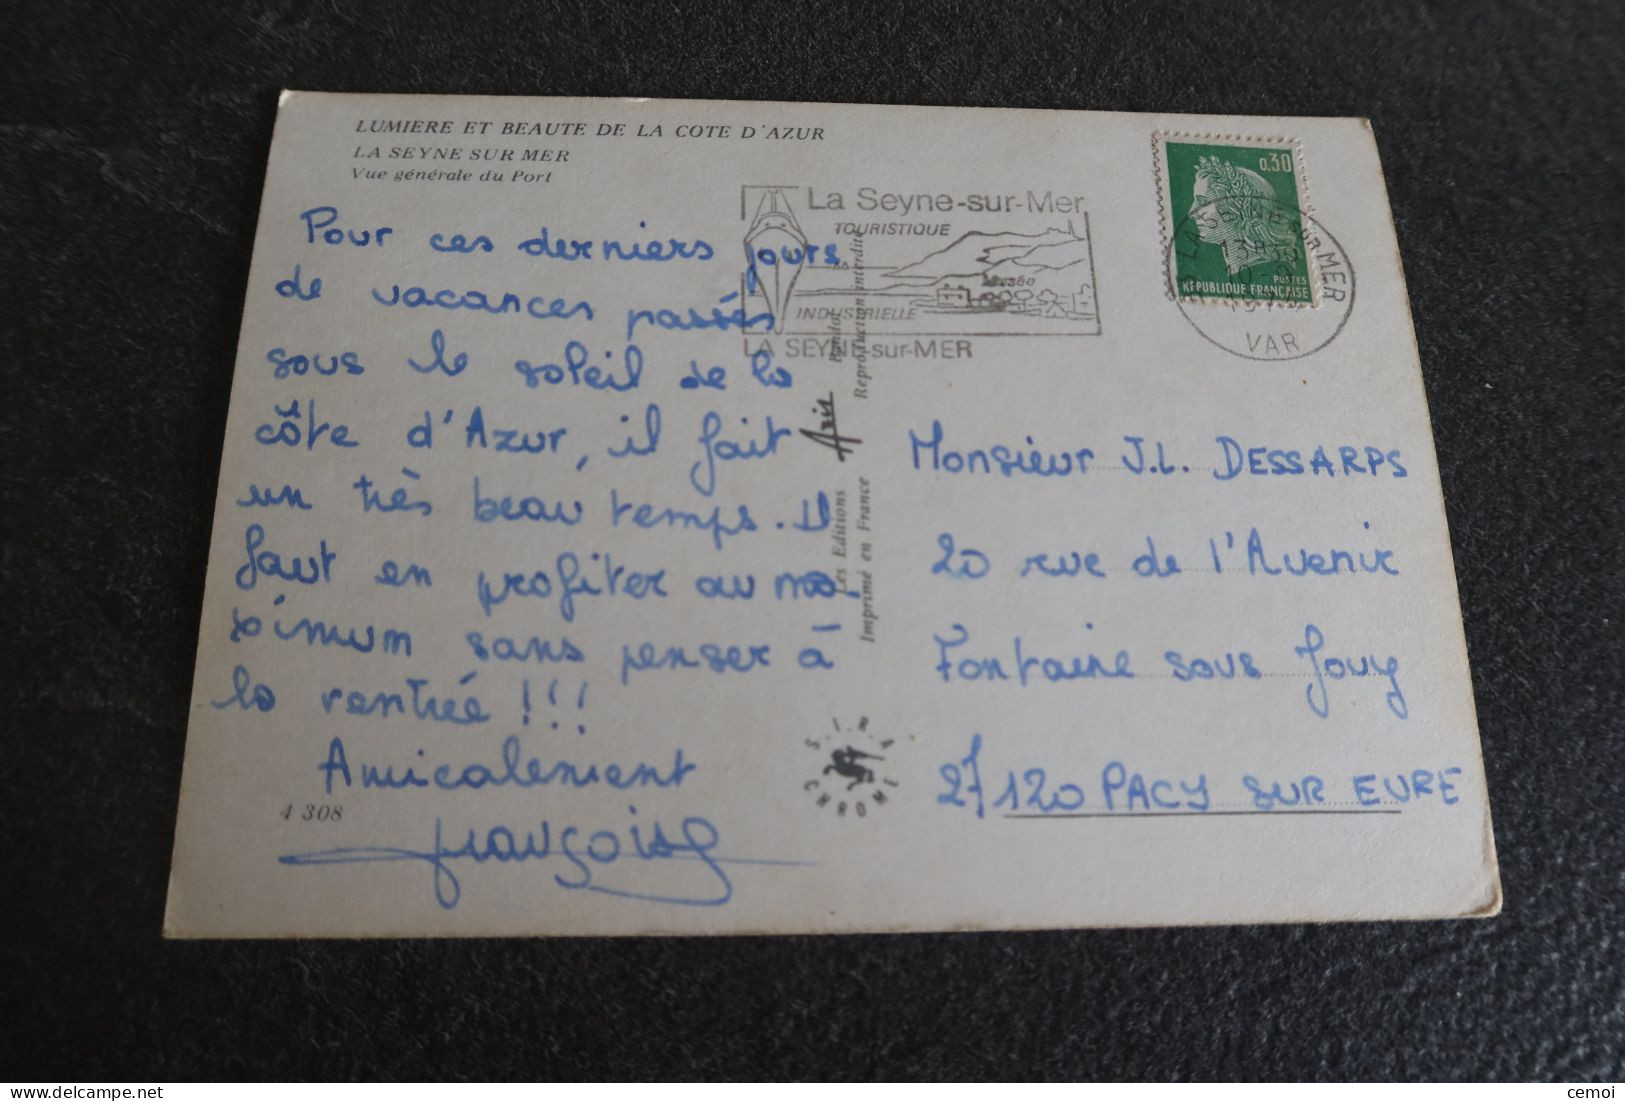 LUMIERE ET BEAUTE DE LA COTE D'AZUR
LA SEYNE SUR MER
Vue générale du Port
Pour ces derniers jours
de vacances passés
sous le soleil de la
côte d'Azur, il fait
un très beau temps. Il
faut en profiter au ma-
ximum sans penser à
la rentrée !!!
Amicalement
Françoise
4 308
La Seyne-sur-Mer
TOURISTIQUE
Musée
INDUSTRIELLE
LA SEYNE-sur-MER
Les Editions Aris Bandol
Imprimé en France Reproduction interdite
S.I.R.A.
CHROME
0,30
POSTES
REPUBLIQUE FRANÇAISE
LA SEYNE sur MER
13H30
VAR
Monsieur J.L. DESSARPS
20 rue de l'Avenir
Fontaine sous Jouy
27120 PACY SUR EURE
cemoi